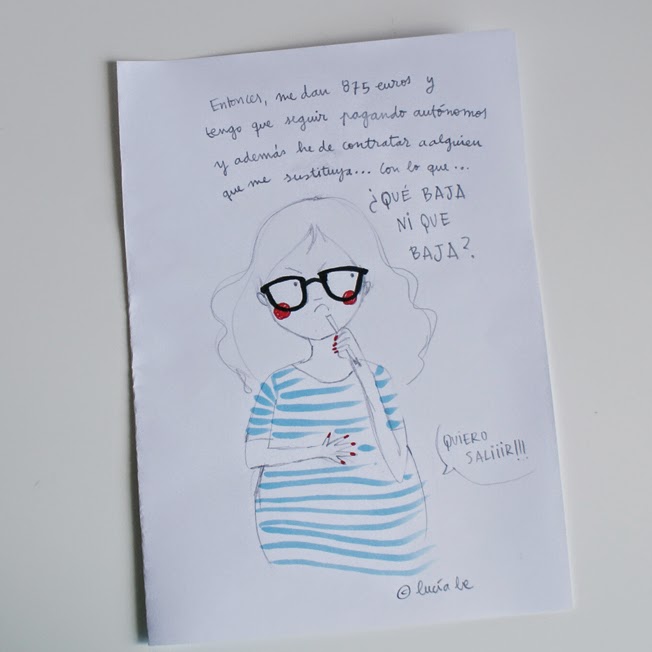 Entonces, me dan 875 euros y
tengo que seguir pagando autónomos
y además he de contratar a alguien
que me sustituya... Con lo que...
¿QUÉ BAJA
NI QUE
BAJA?.
QUIERO
SALIIIR!!!
© lucía be